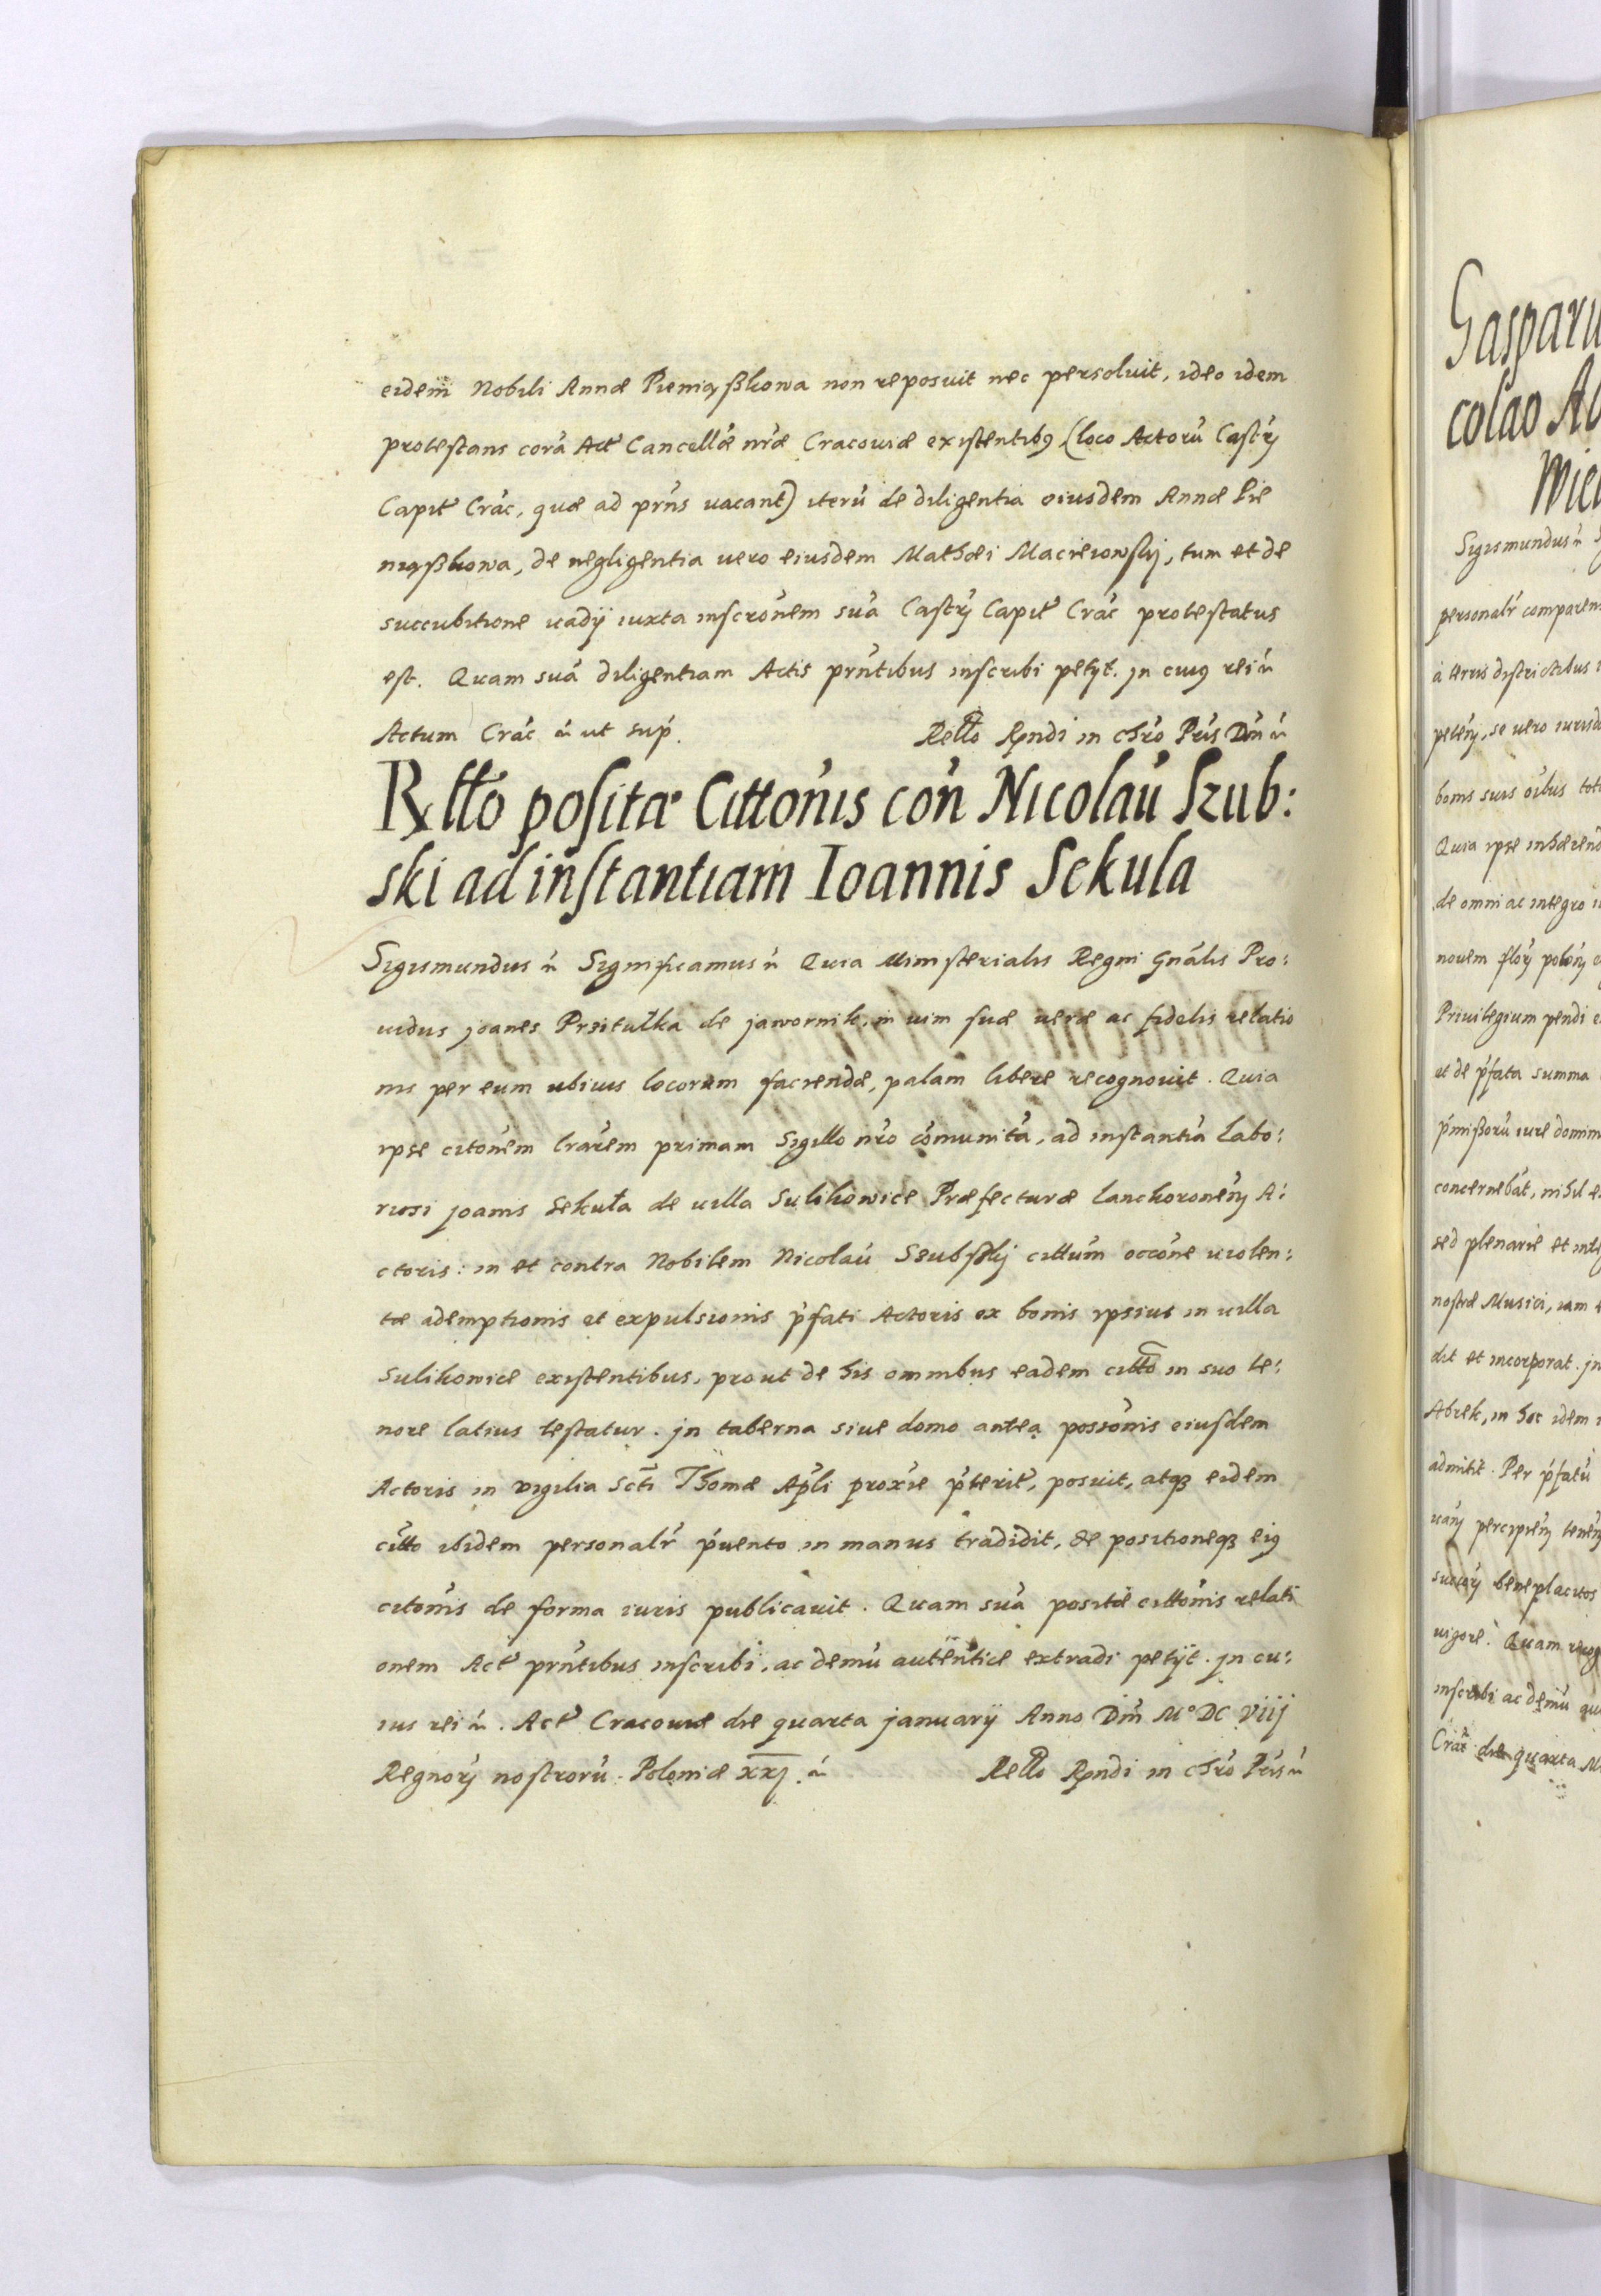 eidem Nobili Annæ Pieniąßkowa non reposuit nec persoluit, ideo idem
protestans corā Act' Cancell'æ nr'æ Cracoviæ existentibꝰ (loco Actorū Castrj
Capit' Crac', quæ ad prn's uacant) iterū de diligentia eiusdem Annæ Pie
niąßkowa, de negligentia uero eiusdem Mathæi Macieiowskij, tum et de
succubitione uadij iuxta inscro'nem suā Castrj Capit' Crac' protestatus
est. Quam suā diligentiam Actis prn'tibus inscribi petyt. jn cuiꝰ rei &
Actum Crac' & ut sup'.
Rello Rndi in Chr'o Pris Dn' &
Rllo positæ Citto'nis con' Nicolaū Szub:
ski ad instantiam Ioannis Sekula
Sigismundus & Significamus & Quia Ministerialis Regni Gn'alis Pro:
uidus joanes Przitułka de jawornik, in uim suæ ueræ ac fidelis relatio
nis per eum ubiuis locorum faciendæ, palam libere recognouit. Quia
ipse cito'nem lra'rem primam Sigillo nr'o co'munitā, ad instantiā Labo:
riosi joanis Sekuła de uilla Sulikowice Præfecturæ Lanckoronen'j A:
ctoris: in et contra Nobilem Nicolaū Szubskij cittum occo'ne uiolen:
tæ ademptionis et expulsionis p'fati Actoris ex bonis ipsius in uilla
Sulikowice existentibus, prout de his omnibus eadem citto in suo te:
nore latius testatur. jn taberna siue domo antea possio'nis eiusdem
Actoris in uigilia Scti Thomæ Apl'i prox'ie p'terit', posuit, atqꝫ eidem
citto ibidem personalr' p'uento in manus tradidit, de positioneqꝫ eiꝰ
cito'nis de forma iuris publicauit. Quam suā positæ citto'nis relati
onem Act' prn'tibus inscribi, ac demū autentice extradi petijt. jn cu:
ius rei &. Act' Cracouiæ die quarta januarij Anno Dm' M° DC Viij
Regnorj nostrorū Poloniæ xxj. &
Rello Rndi in Chr'o Pris &
Gasparu
colao Ad
Sigismundus &
personalr' comparen
à terris districtibus
peten'j, se uero iurisd
bonis suis oi'bus tot
Quia ipse inhæren
de omni ac integro
nouem flor'j polon'j
Priuilegium pendi
et de p'fata summa
p'mißorū iure domin
concernebāt, nihil
sed plenarie et int
nostræ Musici, iam
dit et incorporat. jn
Abrek, in hoc idem
admitit. Per p'fatū
percipien'j tenen'j
beneplacitos
uigore. Quam recog
inscribi ac demū
Crac' die quarta M